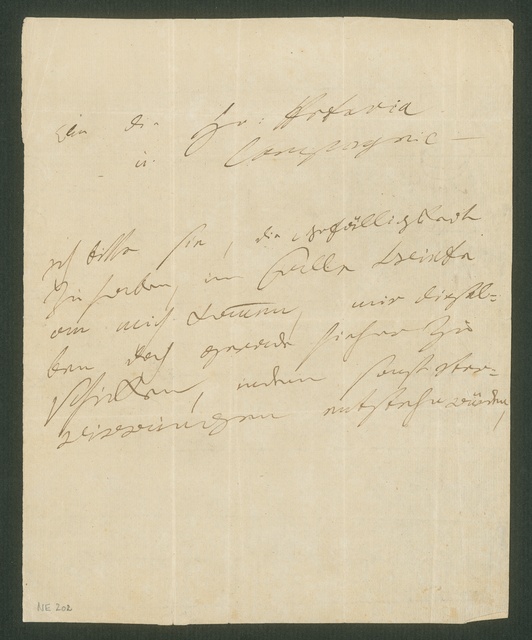 An die Hr: Artaria
u. Compagnie –
ich bitte sie, die gefälligkeit
zu haben, im Falle Briefe
an mich kommen, mir diesel-
ben doch gerade hieher zu
schicken, indem sonst ver-
wirrungen entstehn würden
NE 202